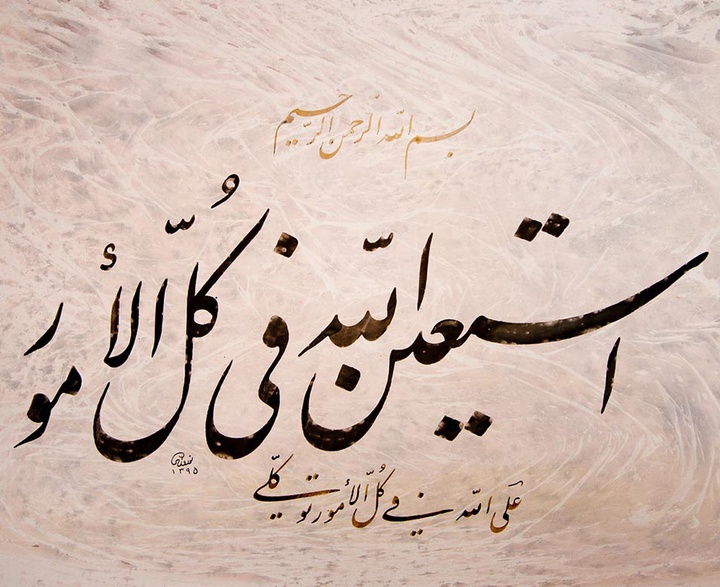 بسم الله الرحمن الرحیم
استعین الله فی کُلّ الأمور
علی الله فی کُلّ الأمور توکّلی
۱۳۹۵